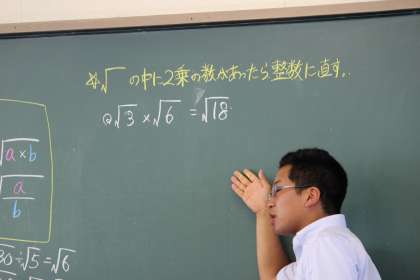 ※√ の中に2乗の数があったら整数に直す.
@√3 × √6 = √18
√a×b
√a/b
√30÷√5=√6